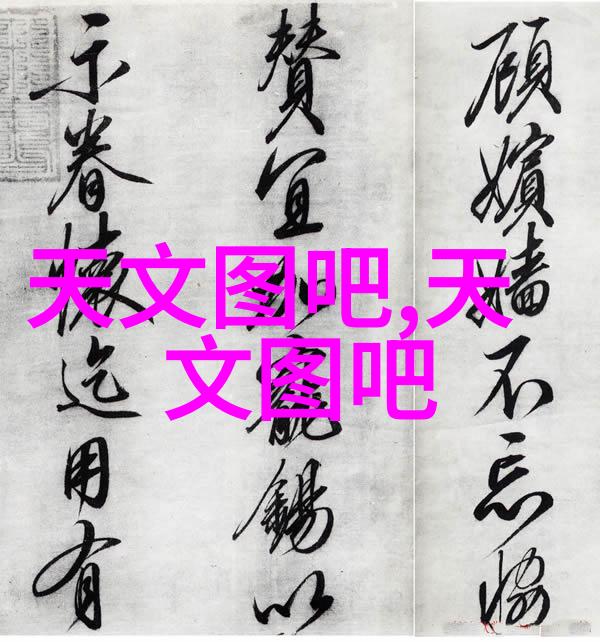 顧嬪嬙不忘協
賛宜加寵錫以
示眷懷迄用有
天文图吧,天
文图吧